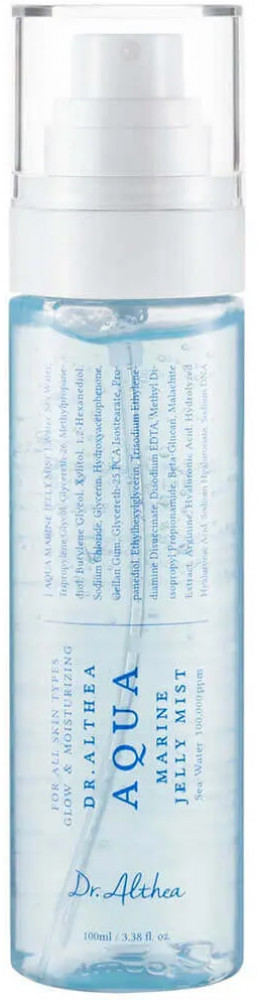 [ AQUA MARINE JELLY MIST ] Water, Sea Water,
Dipropylene Glycol, Glycereth-26, Methylpropane-
diol, Butylene Glycol, Xylitol, 1,2-Hexanediol,
Sodium Chloride, Glycerin, Hydroxyacetophenone,
Gellan Gum, Glycereth-25 PCA Isostearate, Pro-
panediol, Ethylhexylglycerin, Trisodium Ethylene-
diamine Disuccinate, Disodium EDTA, Methyl Di-
isopropyl Propionamide, Beta-Glucan, Malachite
Extract, Arginine, Hyaluronic Acid, Hydrolyzed
Hyaluronic Acid, Sodium Hyaluronate, Sodium DNA
FOR ALL SKIN TYPES
GLOW & MOISTURIZING
DR.ALTHEA
AQUA
MARINE
JELLY MIST
Sea Water 100,000ppm
Dr.Althea
100ml / 3.38 fl. oz.